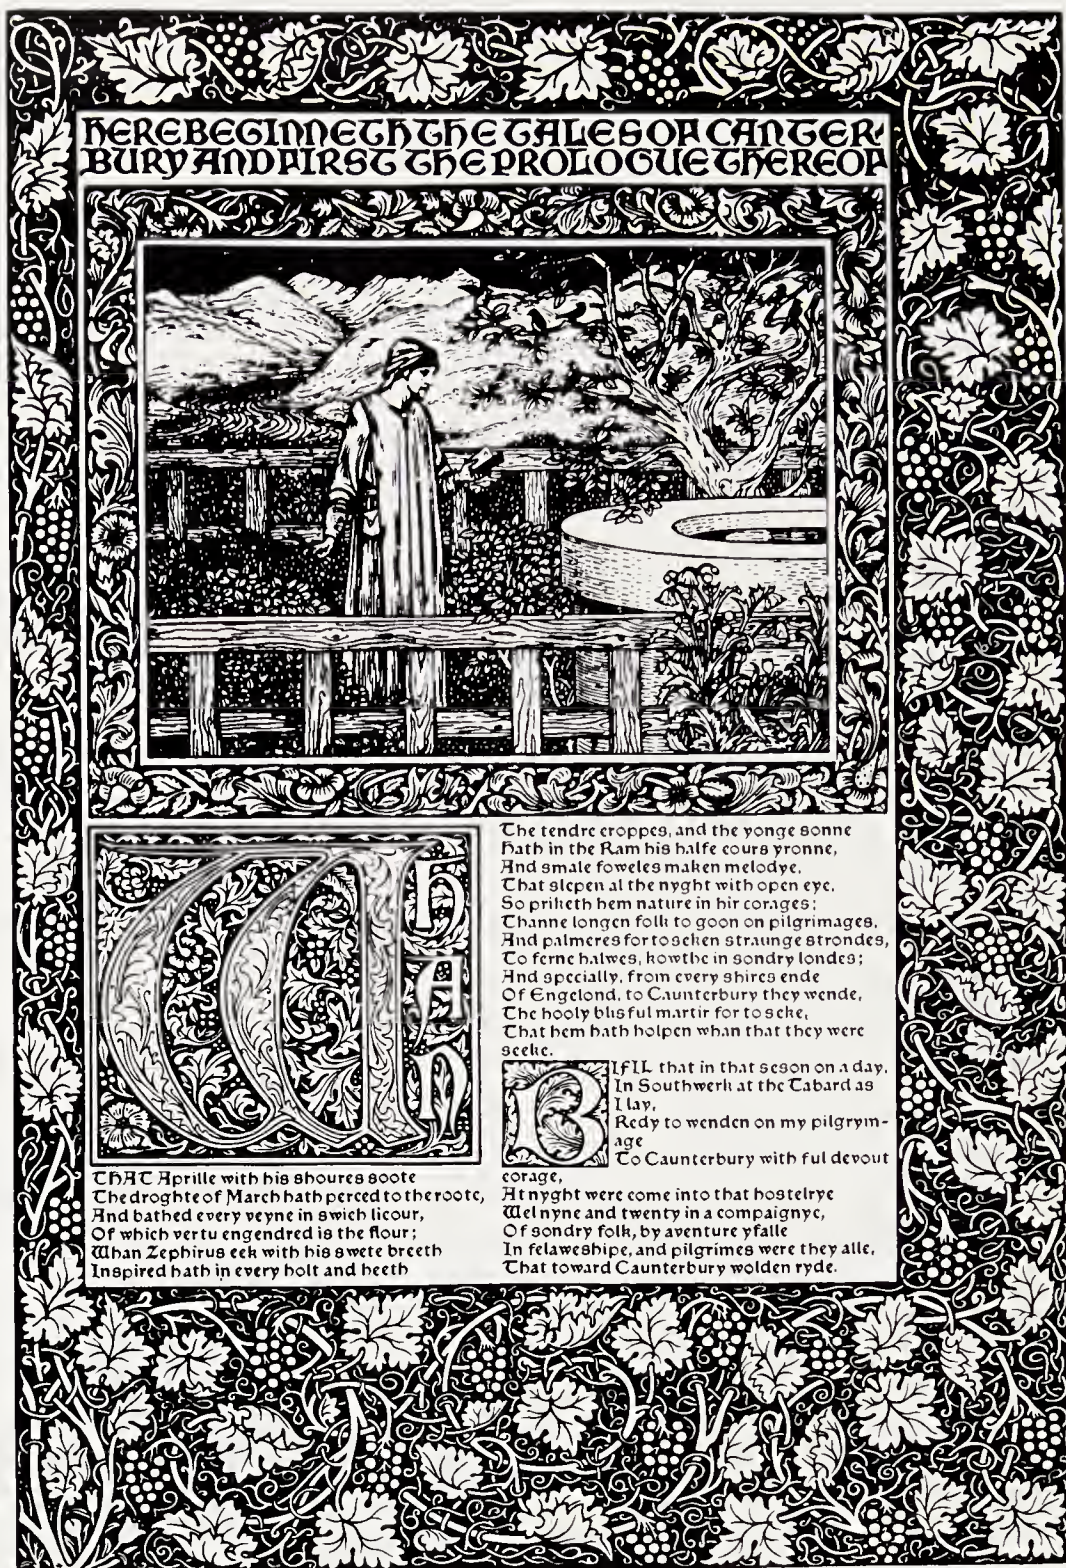 HERE BEGINNETH THE TALES OF CANTER-
BURY AND FIRST THE PROLOGUE THEREOF
WHAN
THAT Aprille with his shoures soote
The droghte of March hath perced to the roote,
And bathed every veyne in swich licour,
Of which vertu engendred is the flour;
Whan Zephirus eek with his swete breeth
Inspired hath in every holt and heeth
The tendre croppes, and the yonge sonne
Hath in the Ram his halfe cours yronne,
And smale foweles maken melodye,
That slepen al the nyght with open eye,
So priketh hem nature in hir corages;
Thanne longen folk to goon on pilgrimages,
And palmeres for to seken straunge strondes,
To ferne halwes, kowthe in sondry londes;
And specially, from every shires ende
Of Engelond, to Caunterbury they wende,
The hooly blisful martir for to seke,
That hem hath holpen whan that they were
seeke.
BIfIL that in that seson on a day,
In Southwerk at the Tabard as
I lay,
Redy to wenden on my pilgrym-
age
To Caunterbury with ful devout
corage,
At nyght were come into that hostelrye
Wel nyne and twenty in a compaignye,
Of sondry folk, by aventure yfalle
In felaweshipe, and pilgrimes were they alle,
That toward Caunterbury wolden ryde.